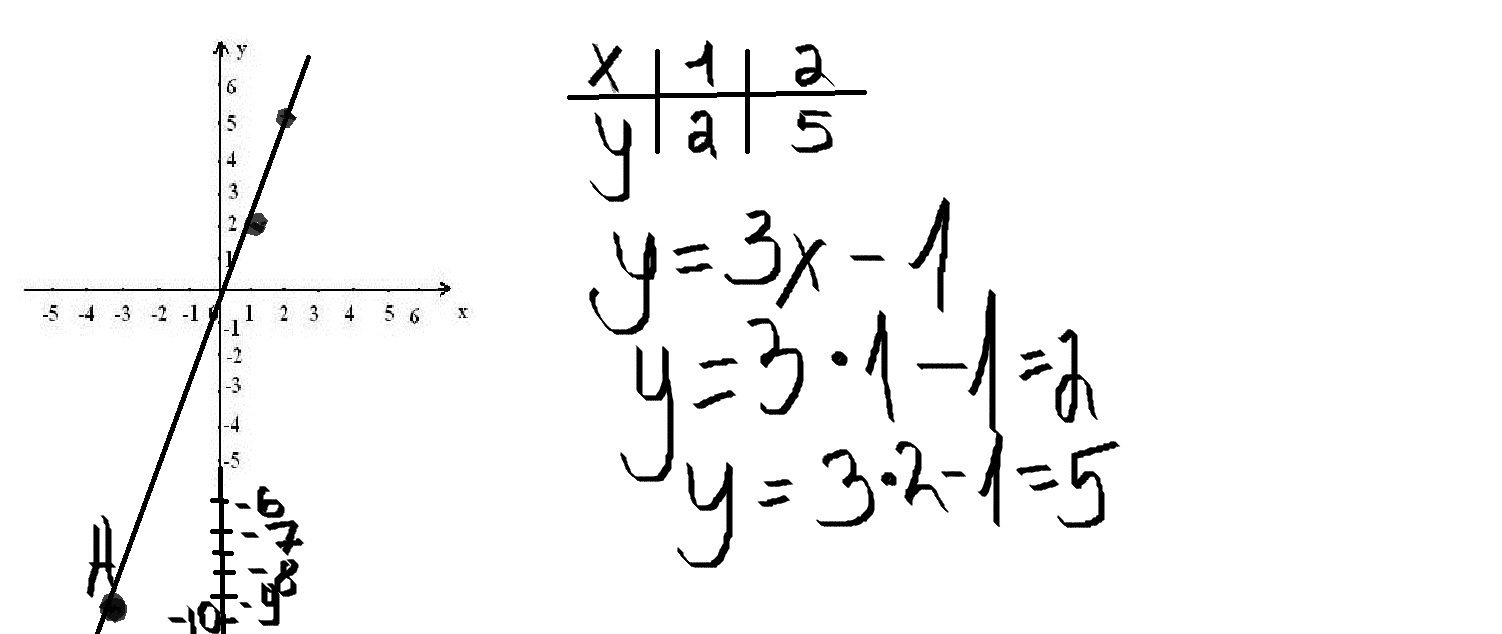 y
6
5
4
3
2
1
-5 -4 -3 -2 -1 0 1 2 3 4 5 6 x
-1
-2
-3
-4
-5
-6
-7
-8
-9
-10
A
x 1 2
y 2 5
y = 3x - 1
y = 3 · 1 - 1 = 2
y = 3 · 2 - 1 = 5